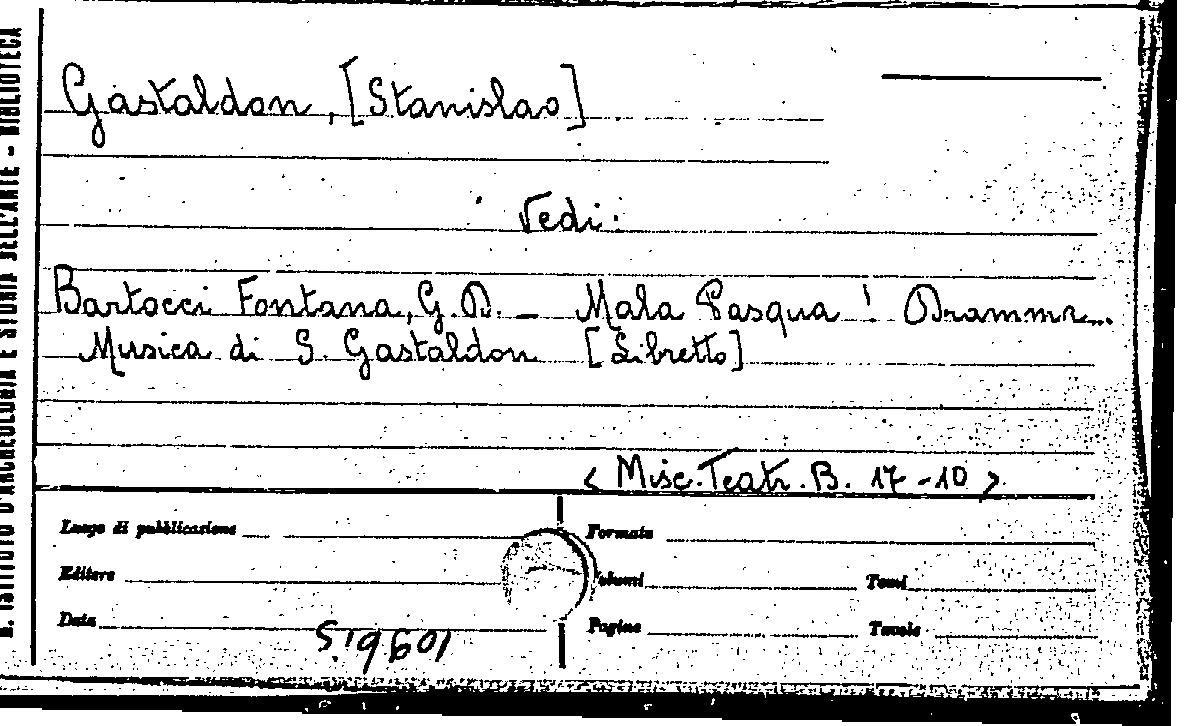 R. ISTITUTO D'ARCHEOLOGIA E STORIA DELL'ARTE - BIBLIOTECA
Gastaldon, [Stanislao]
Vedi:
Bartocci Fontana, G.D. — Mala Pasqua! Dramma...
Musica di S. Gastaldon [Libretto]
< Misc. Teatr. B. 17-10 >
Luogo di pubblicazione
Formato
Editore
Volumi
Tomi
Data
Pagine
Tavole
S.19601